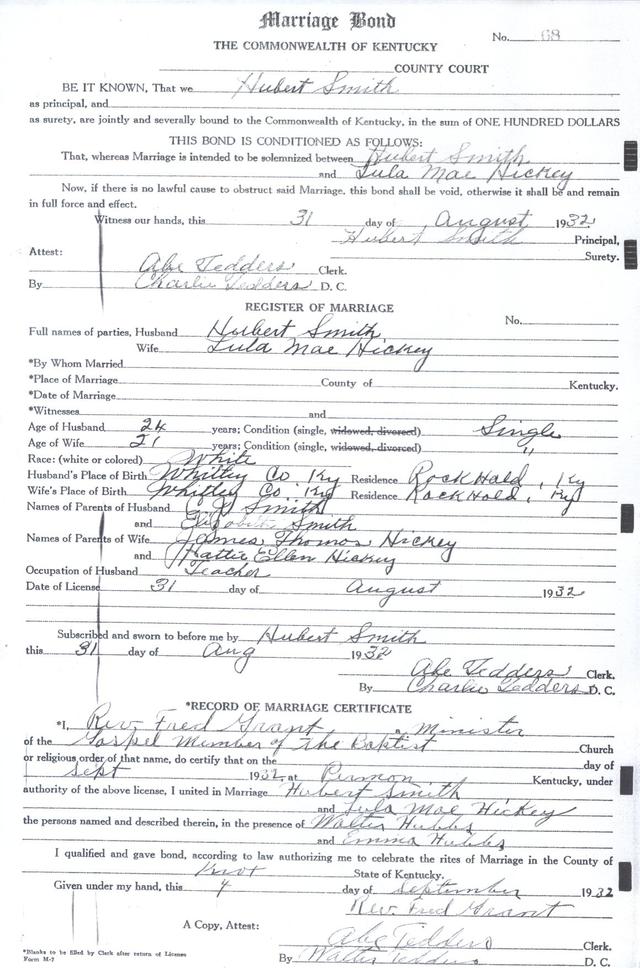 Marriage Bond
No. 68
THE COMMONWEALTH OF KENTUCKY
COUNTY COURT
BE IT KNOWN, That we Hubert Smith
as principal, and
as surety, are jointly and severally bound to the Commonwealth of Kentucky, in the sum of ONE HUNDRED DOLLARS
THIS BOND IS CONDITIONED AS FOLLOWS:
That, whereas Marriage is intended to be solemnized between Hubert Smith
and Lula Mae Hickey
Now, if there is no lawful cause to obstruct said Marriage, this bond shall be void, otherwise it shall be and remain
in full force and effect.
Witness our hands, this 31 day of August 1932
Hubert Smith Principal,
Surety.
Attest:
Abe Tedders Clerk.
By Charlie Tedders D. C.
REGISTER OF MARRIAGE
No.
Full names of parties, Husband Hubert Smith
Wife Lula Mae Hickey
*By Whom Married
*Place of Marriage County of Kentucky.
*Date of Marriage
*Witnesses and
Age of Husband 24 years; Condition (single, widowed, divorced) Single
Age of Wife 21 years; Condition (single, widowed, divorced) "
Race: (white or colored) White
Husband's Place of Birth Whitley Co. Ky Residence Rock Hold, Ky
Wife's Place of Birth Whitley Co. Ky Residence Rock Hold, Ky
Names of Parents of Husband Smith
and Elizabeth Smith
Names of Parents of Wife James Thomas Hickey
and Hattie Ellen Hickey
Occupation of Husband Teacher
Date of License 31 day of August 1932
Subscribed and sworn to before me by Hubert Smith
this 31 day of Aug 1932
Abe Tedders Clerk.
By Charlie Tedders D. C.
*RECORD OF MARRIAGE CERTIFICATE
*I, Rev. Fred Grant a Minister
of the Gospel Member of the Baptist Church
or religious order of that name, do certify that on the day of
Sept 1932 at Permon Kentucky, under
authority of the above license, I united in Marriage Hubert Smith
and Lula Mae Hickey
the persons named and described therein, in the presence of Walter Hubbs
and Emma Hubbs
I qualified and gave bond, according to law authorizing me to celebrate the rites of Marriage in the County of
Knox State of Kentucky.
Given under my hand, this 4 day of September 1932
Rev. Fred Grant
A Copy, Attest:
Abe Tedders Clerk.
By Walter Tedders D. C.
*Blanks to be filled by Clerk after return of License
Form M-7